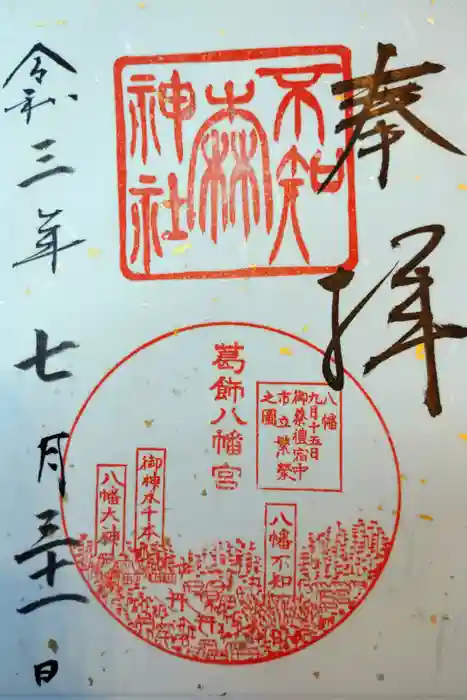 奉拝
不知
森
神社
葛飾八幡宮
八幡
九月十五日
御祭禮宿中
市立繁榮
之圖
八幡不知
御神木千本
八幡大神
令和三年七月三十一日